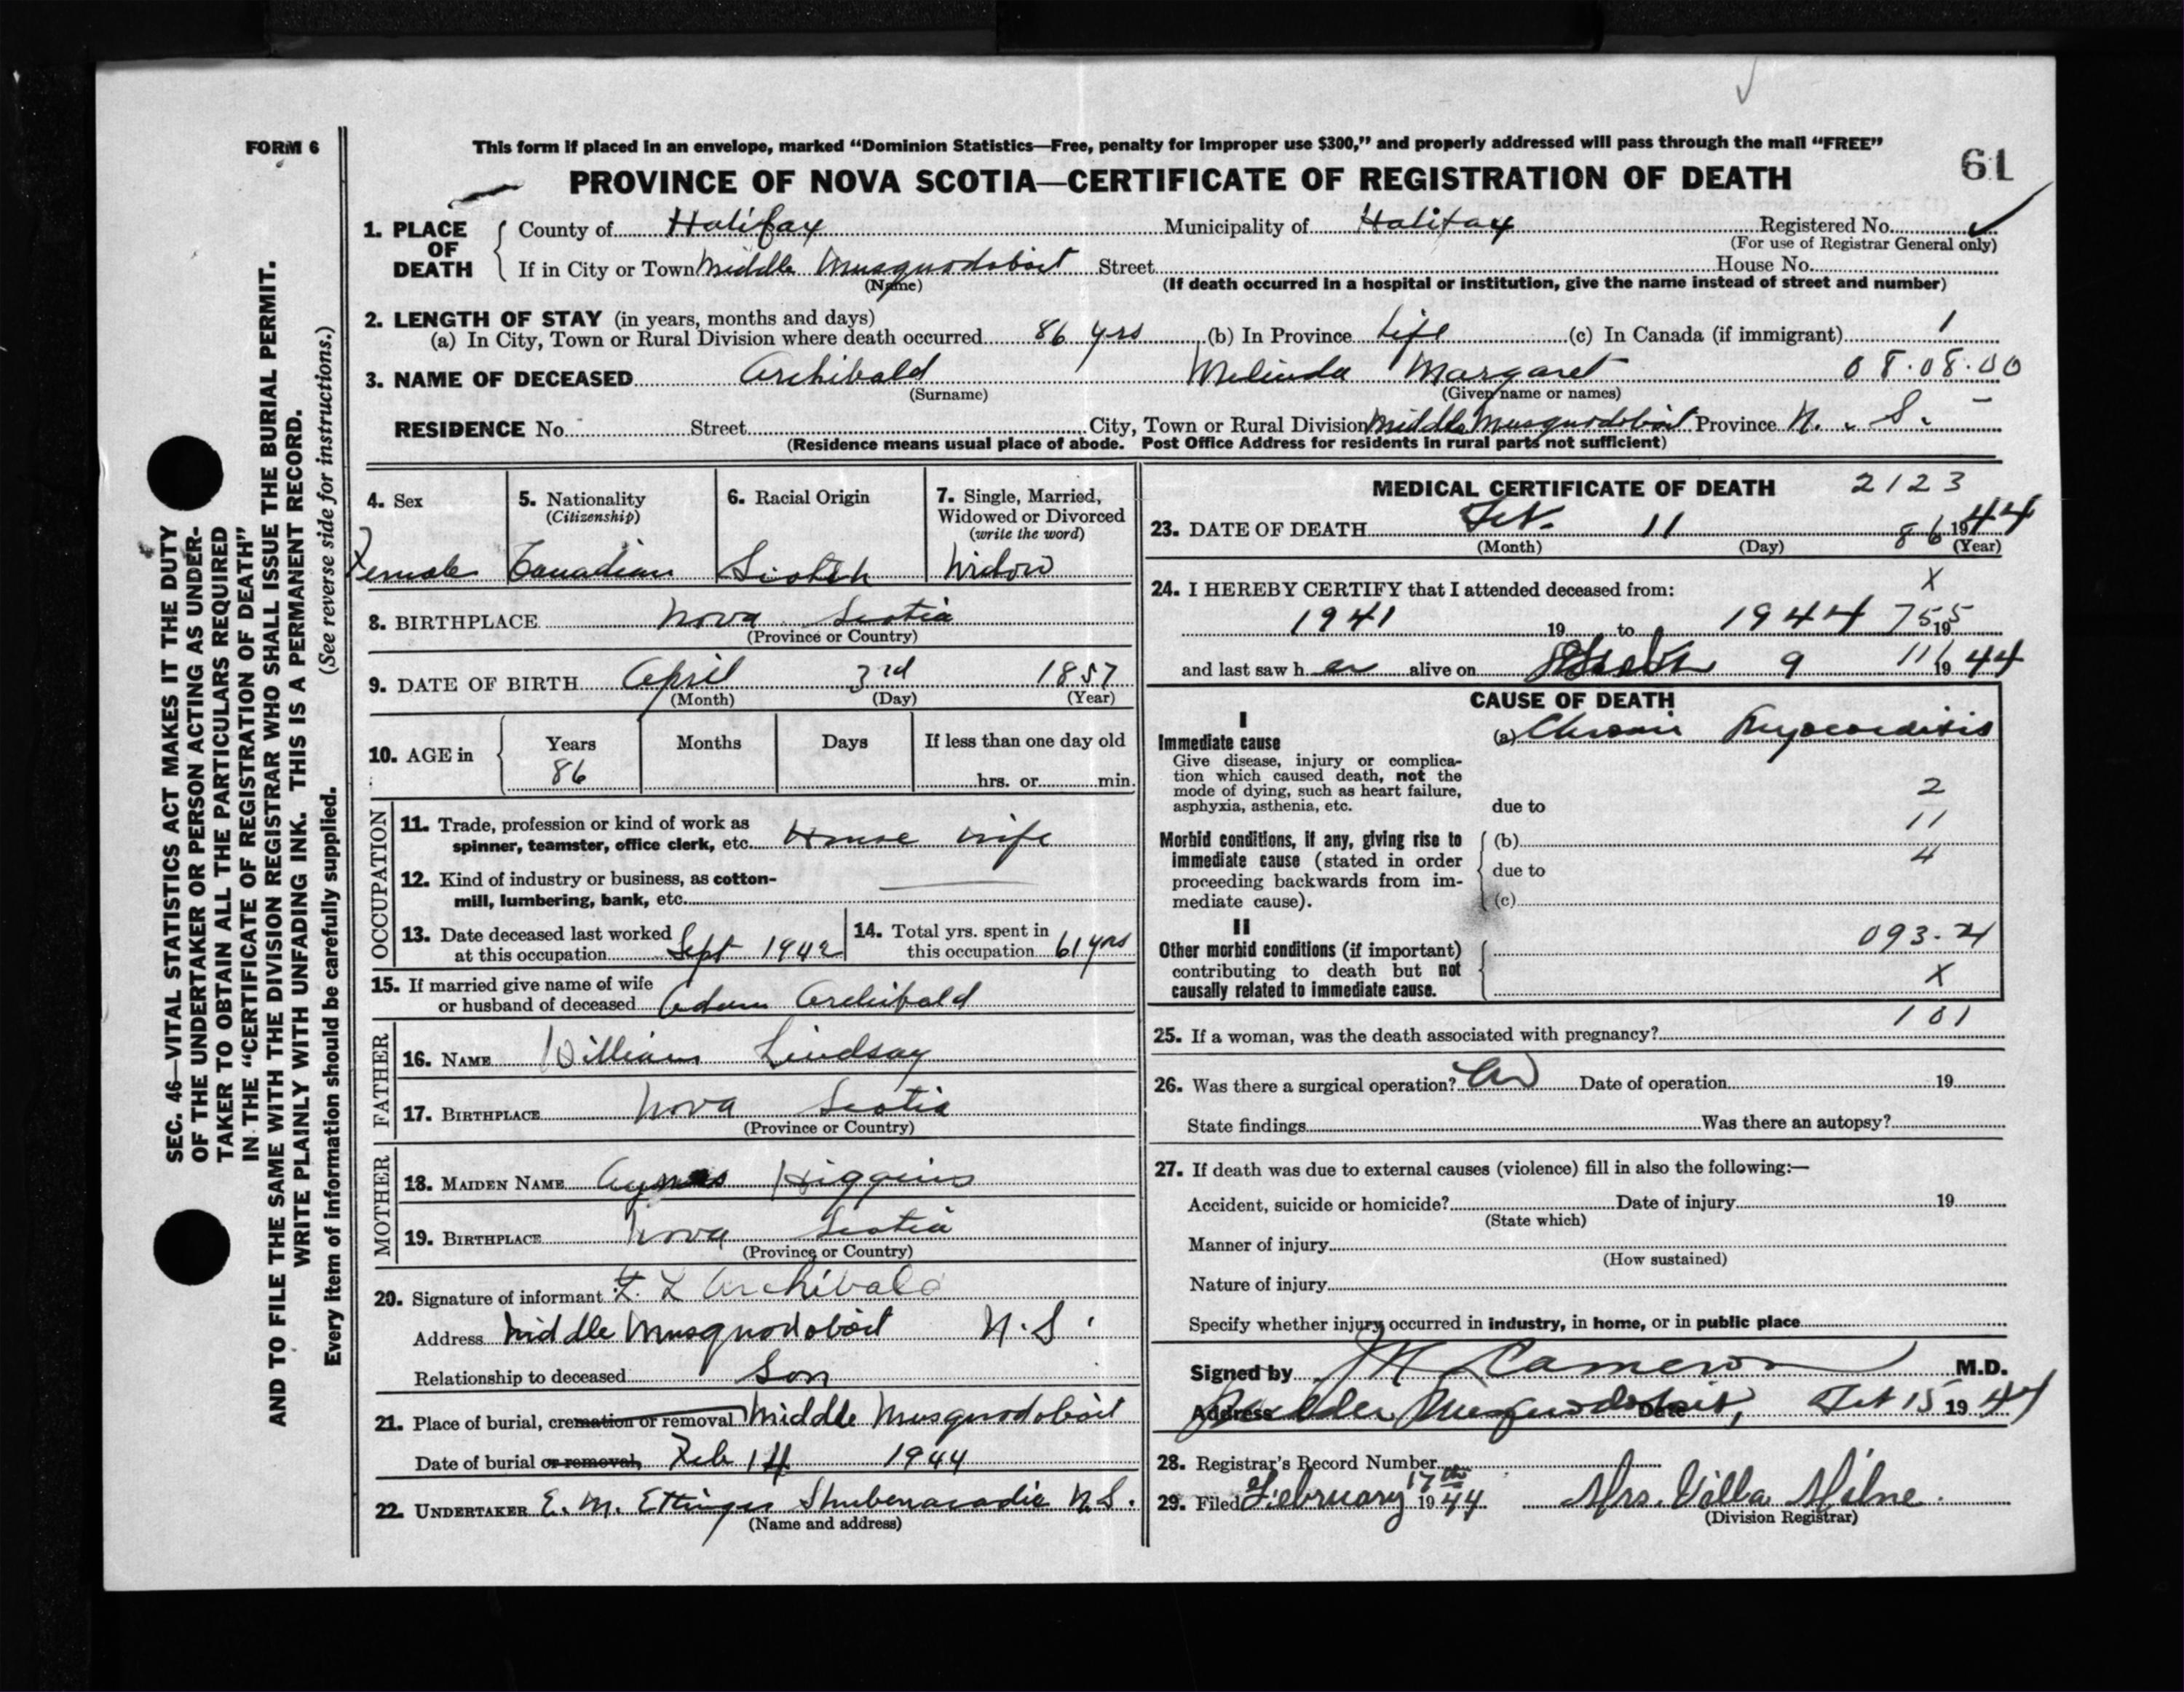 FORM 6
This form if placed in an envelope, marked “Dominion Statistics—Free, penalty for improper use $300,” and properly addressed will pass through the mail “FREE”
61
PROVINCE OF NOVA SCOTIA—CERTIFICATE OF REGISTRATION OF DEATH
1. PLACE OF DEATH
County of Halifax Municipality of Halifax Registered No.
(For use of Registrar General only)
If in City or Town Middle Musquodoboit Street House No.
(Name)
(If death occurred in a hospital or institution, give the name instead of street and number)
2. LENGTH OF STAY (in years, months and days)
(a) In City, Town or Rural Division where death occurred 86 yrs (b) In Province Life (c) In Canada (if immigrant) 1
3. NAME OF DECEASED Archibald Melinda Margaret 08.08.00
(Surname) (Given name or names)
RESIDENCE No. Street City, Town or Rural Division Middle Musquodoboit Province N. S.
(Residence means usual place of abode. Post Office Address for residents in rural parts not sufficient)
SEC. 46—VITAL STATISTICS ACT MAKES IT THE DUTY
OF THE UNDERTAKER OR PERSON ACTING AS UNDER-
TAKER TO OBTAIN ALL THE PARTICULARS REQUIRED
IN THE “CERTIFICATE OF REGISTRATION OF DEATH”
AND TO FILE THE SAME WITH THE DIVISION REGISTRAR WHO SHALL ISSUE THE BURIAL PERMIT.
WRITE PLAINLY WITH UNFADING INK. THIS IS A PERMANENT RECORD.
Every item of information should be carefully supplied. (See reverse side for instructions.)
4. Sex
Female
5. Nationality
(Citizenship)
Canadian
6. Racial Origin
Scotch
7. Single, Married,
Widowed or Divorced
(write the word)
Widow
8. BIRTHPLACE Nova Scotia
(Province or Country)
9. DATE OF BIRTH April 3rd 1857
(Month) (Day) (Year)
10. AGE in Years Months Days If less than one day old
86 hrs. or min.
OCCUPATION
11. Trade, profession or kind of work as
spinner, teamster, office clerk, etc. House wife
12. Kind of industry or business, as cotton-
mill, lumbering, bank, etc.
13. Date deceased last worked
at this occupation Sept 1942
14. Total yrs. spent in
this occupation 61 yrs
15. If married give name of wife
or husband of deceased Adam Archibald
FATHER
16. NAME William Lindsay
17. BIRTHPLACE Nova Scotia
(Province or Country)
MOTHER
18. MAIDEN NAME Higgins
19. BIRTHPLACE Nova Scotia
(Province or Country)
20. Signature of informant L Archibald
Address Middle Musquodoboit N.S.
Relationship to deceased Son
21. Place of burial, cremation or removal Middle Musquodoboit
Date of burial or removal, Feb 14 1944
22. UNDERTAKER E. M. Ettinger Shubenacadie N.S.
(Name and address)
MEDICAL CERTIFICATE OF DEATH 2123
23. DATE OF DEATH Feb. 11 86 1944
(Month) (Day) (Year)
24. I HEREBY CERTIFY that I attended deceased from: X
1941 19 to 1944 755 19
and last saw h er alive on 9 111 19 44
CAUSE OF DEATH
I
Immediate cause
Give disease, injury or complica-
tion which caused death, not the
mode of dying, such as heart failure,
asphyxia, asthenia, etc.
(a) Chronic Myocarditis
2
due to
11
Morbid conditions, if any, giving rise to
immediate cause (stated in order
proceeding backwards from im-
mediate cause).
(b)
4
due to
(c)
II
Other morbid conditions (if important)
contributing to death but not
causally related to immediate cause.
093.
X
101
25. If a woman, was the death associated with pregnancy?
26. Was there a surgical operation? Date of operation 19
State findings Was there an autopsy?
27. If death was due to external causes (violence) fill in also the following:—
Accident, suicide or homicide? Date of injury 19
(State which)
Manner of injury
(How sustained)
Nature of injury
Specify whether injury occurred in industry, in home, or in public place
Signed by Cameron M.D.
Address Musquodoboit, Date Feb 15 19 44
28. Registrar's Record Number
29. Filed February 17th 1944 Mrs. Villa Milne
(Division Registrar)